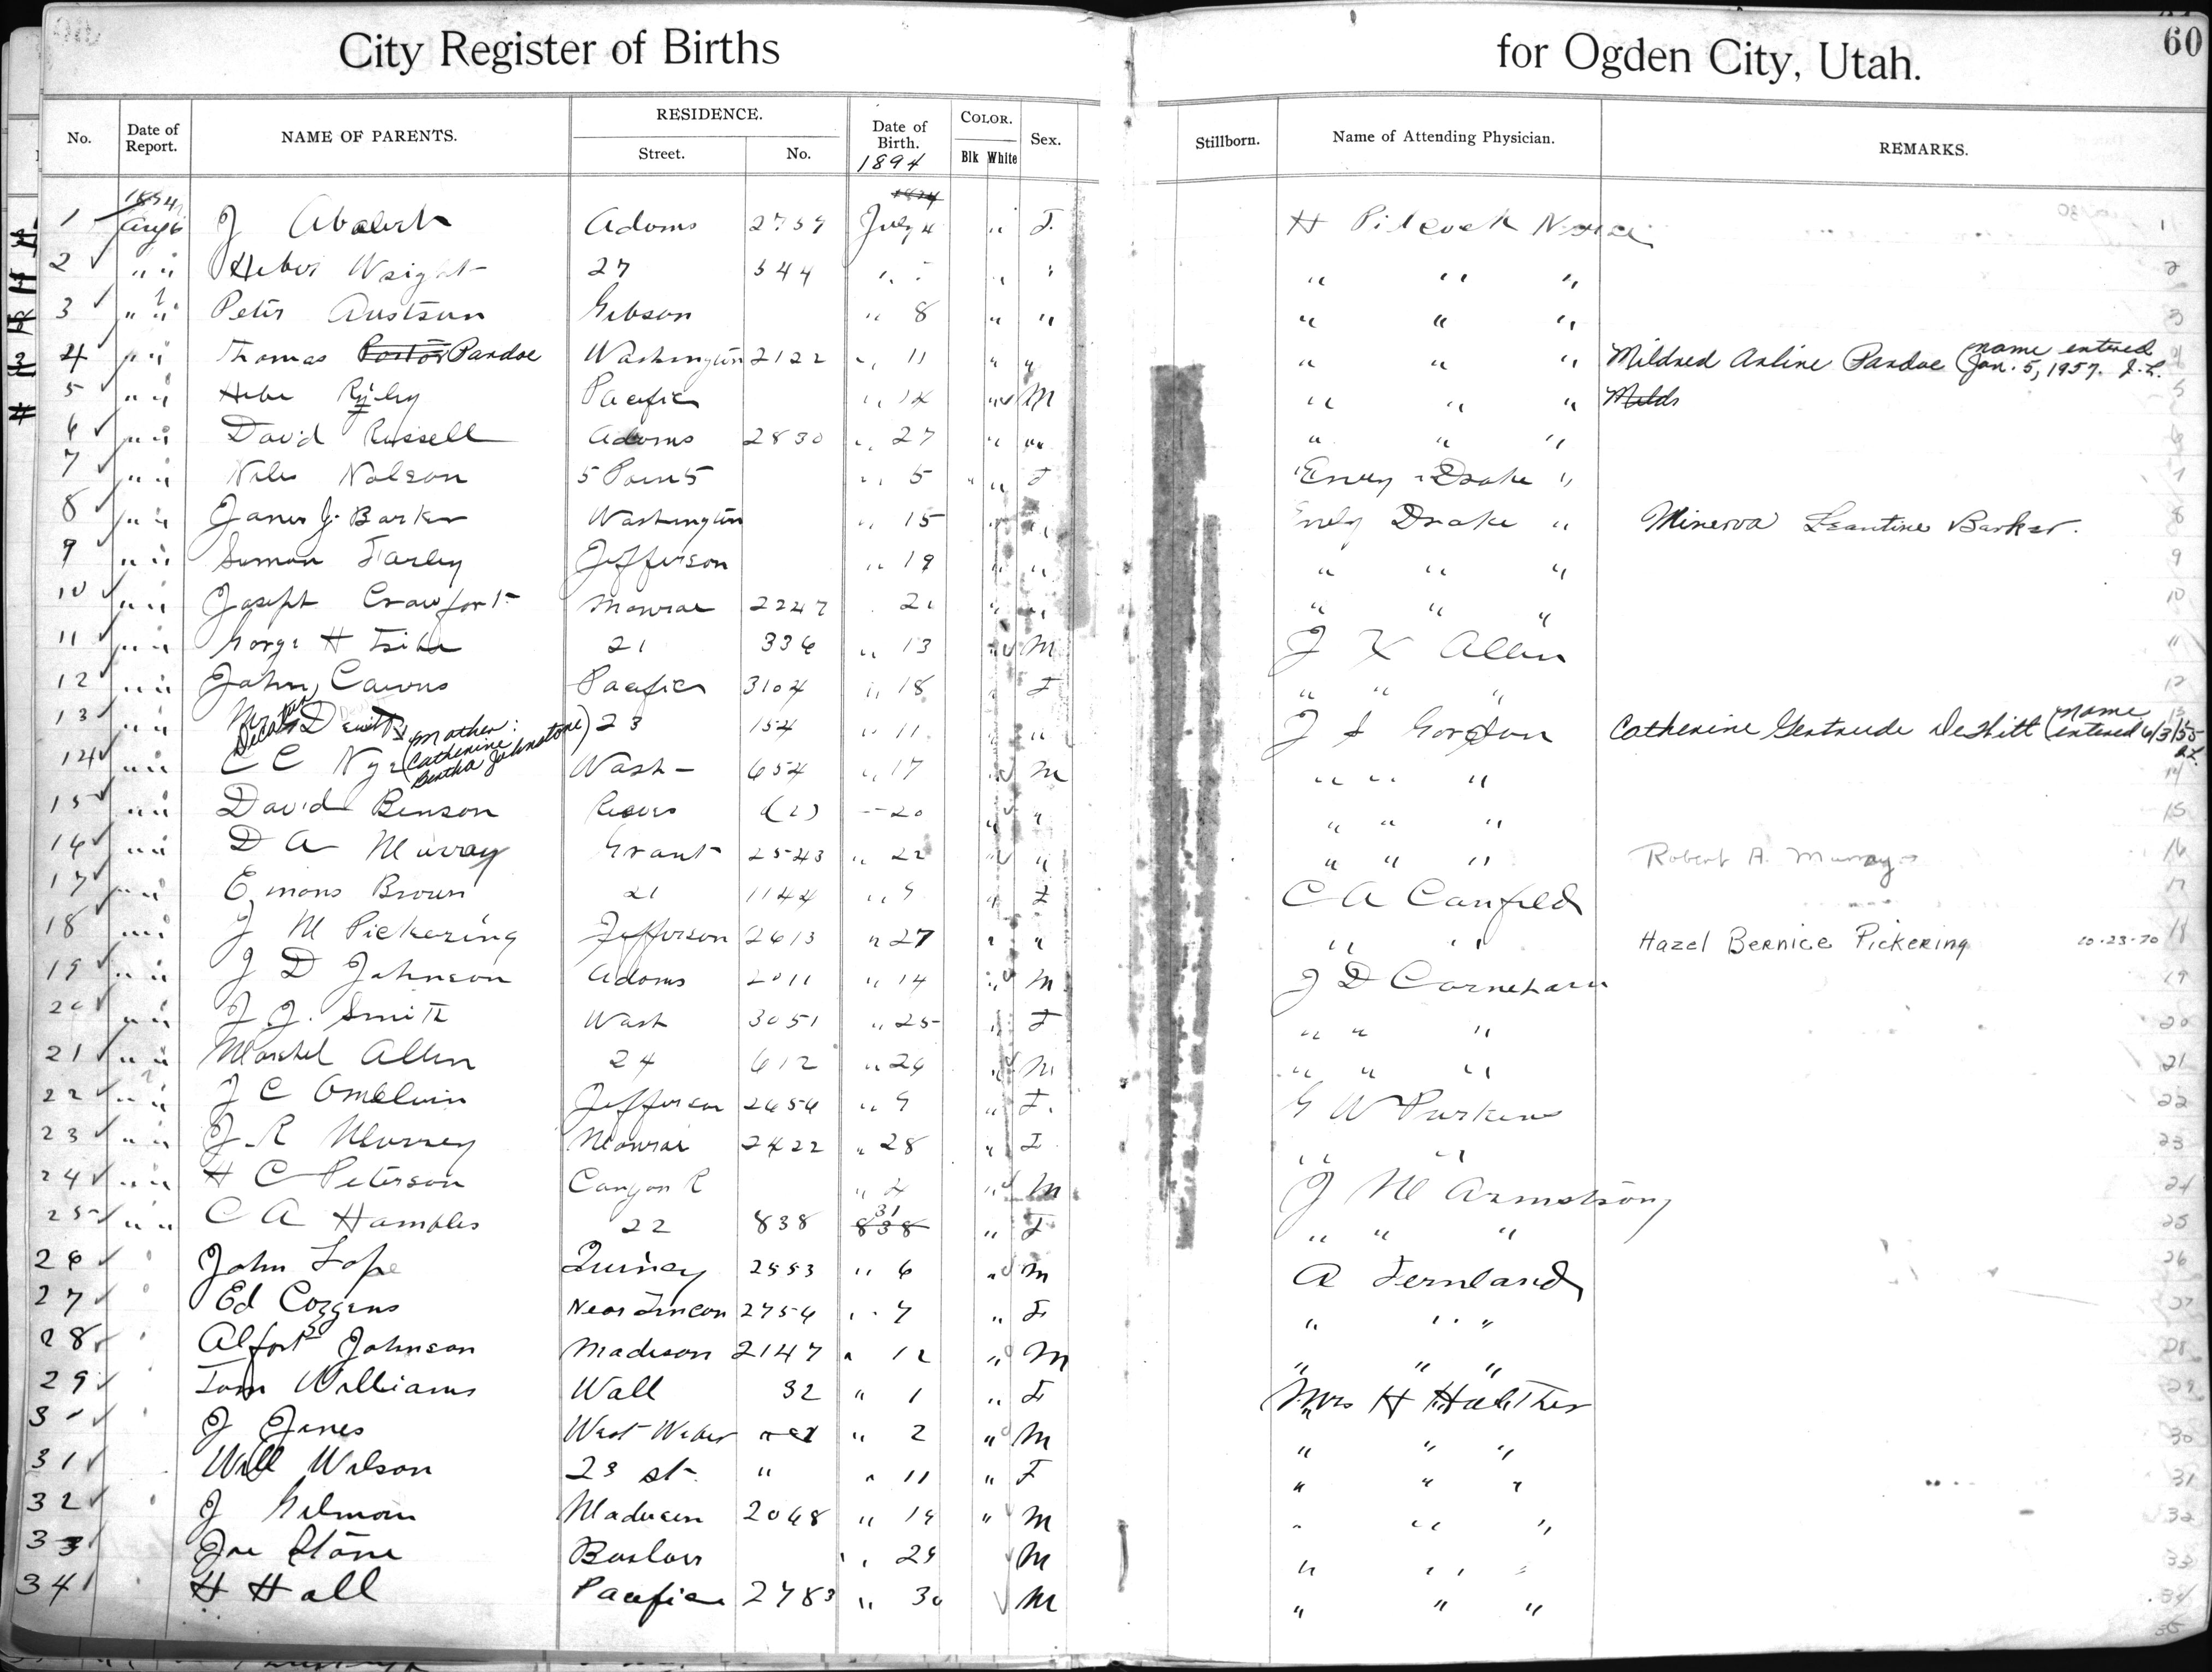 City Register of Births for Ogden City, Utah. 60
No. Date of Report. NAME OF PARENTS. RESIDENCE. Street. No. Date of Birth. 1894 COLOR. Blk White Sex. Stillborn. Name of Attending Physician. REMARKS.
1894
1 Aug 6 J Adams 2757 July 4 " F. H Pilcock Nurse 1
2 " " Heber Wright 27 544 " " " " " " 2
3 " " Peter Gibson " 8 " " " " " 3
4 " " Thomas Pardoe Washington 2122 " 11 " " " " " Mildred Arline Pardoe (name entered Jan. 5, 1957. J.L. 4
5 " " Pacific " 14 " M " " " 5
6 " " David Russell Adams 2830 " 27 " " " " " 6
7 " " Niles Nelson 5 Points " 5 " F Drake " 7
8 " " James J. Barker Washington " 15 " " Drake " Minerva Leantine Barker. 8
9 " " Simon Farley Jefferson " 19 " " " " " 9
10 " " Joseph Crawfort Monroe 2247 " " " " " 10
11 " " H 21 336 " 13 " M J X Allen 11
12 " " John Cairns Pacific 3104 " 18 " F " " " 12
13 " " Decatur Dewitt (mother: Catherine Bertha Johnstone) 23 154 " 11 " " J S Gordon Catherine Gertrude DeWitt (name entered 6/3/55 13
14 " " C C Nye Wash 654 " 17 " M " " " 14
15 " " David Benson (2) " 20 " " " " " 15
16 " " D A Murray Grant 2543 " 22 " " " " " Robert A. Murray 16
17 " " Brown 21 1144 " 9 " F C A Canfield 17
18 " " J M Pickering Jefferson 2613 " 27 " " " " Hazel Bernice Pickering 10-23-70 18
19 " " J D Johnson Adams 2011 " 14 " M J D Carnahan 19
20 " " J J. Smith Wash 3051 " 25 " F " " " 20
21 " " Allen 24 612 " " M " " " 21
22 " " J C Jefferson 2654 " 9 " F. G W Perkins 22
23 " " J R Murrey Monroe 2422 " 28 " F " " 23
24 " " H C Peterson Canyon R " 4 " M J M Armstrong 24
25 " " C A Hambles 22 838 31 " F " " " 25
26 John Quincy 2553 " 6 " M A Fernlund 26
27 Ed Cozzens Near Lincon 2754 " 7 " F " " " 27
28 Alfort Johnson Madison 2147 " 12 " M " " " 28
29 Tom Williams Wall 32 " 1 " F Mrs H 29
30 J Janes West Weber " 2 " M " " " 30
31 Will Wilson 23 st " " 11 " F " " " 31
32 J Gilman Madison 2068 " 19 " M " " " 32
33 Joe Stone " 29 M " " " 33
34 H Hall Pacific 2783 " 30 M " " " 34
35